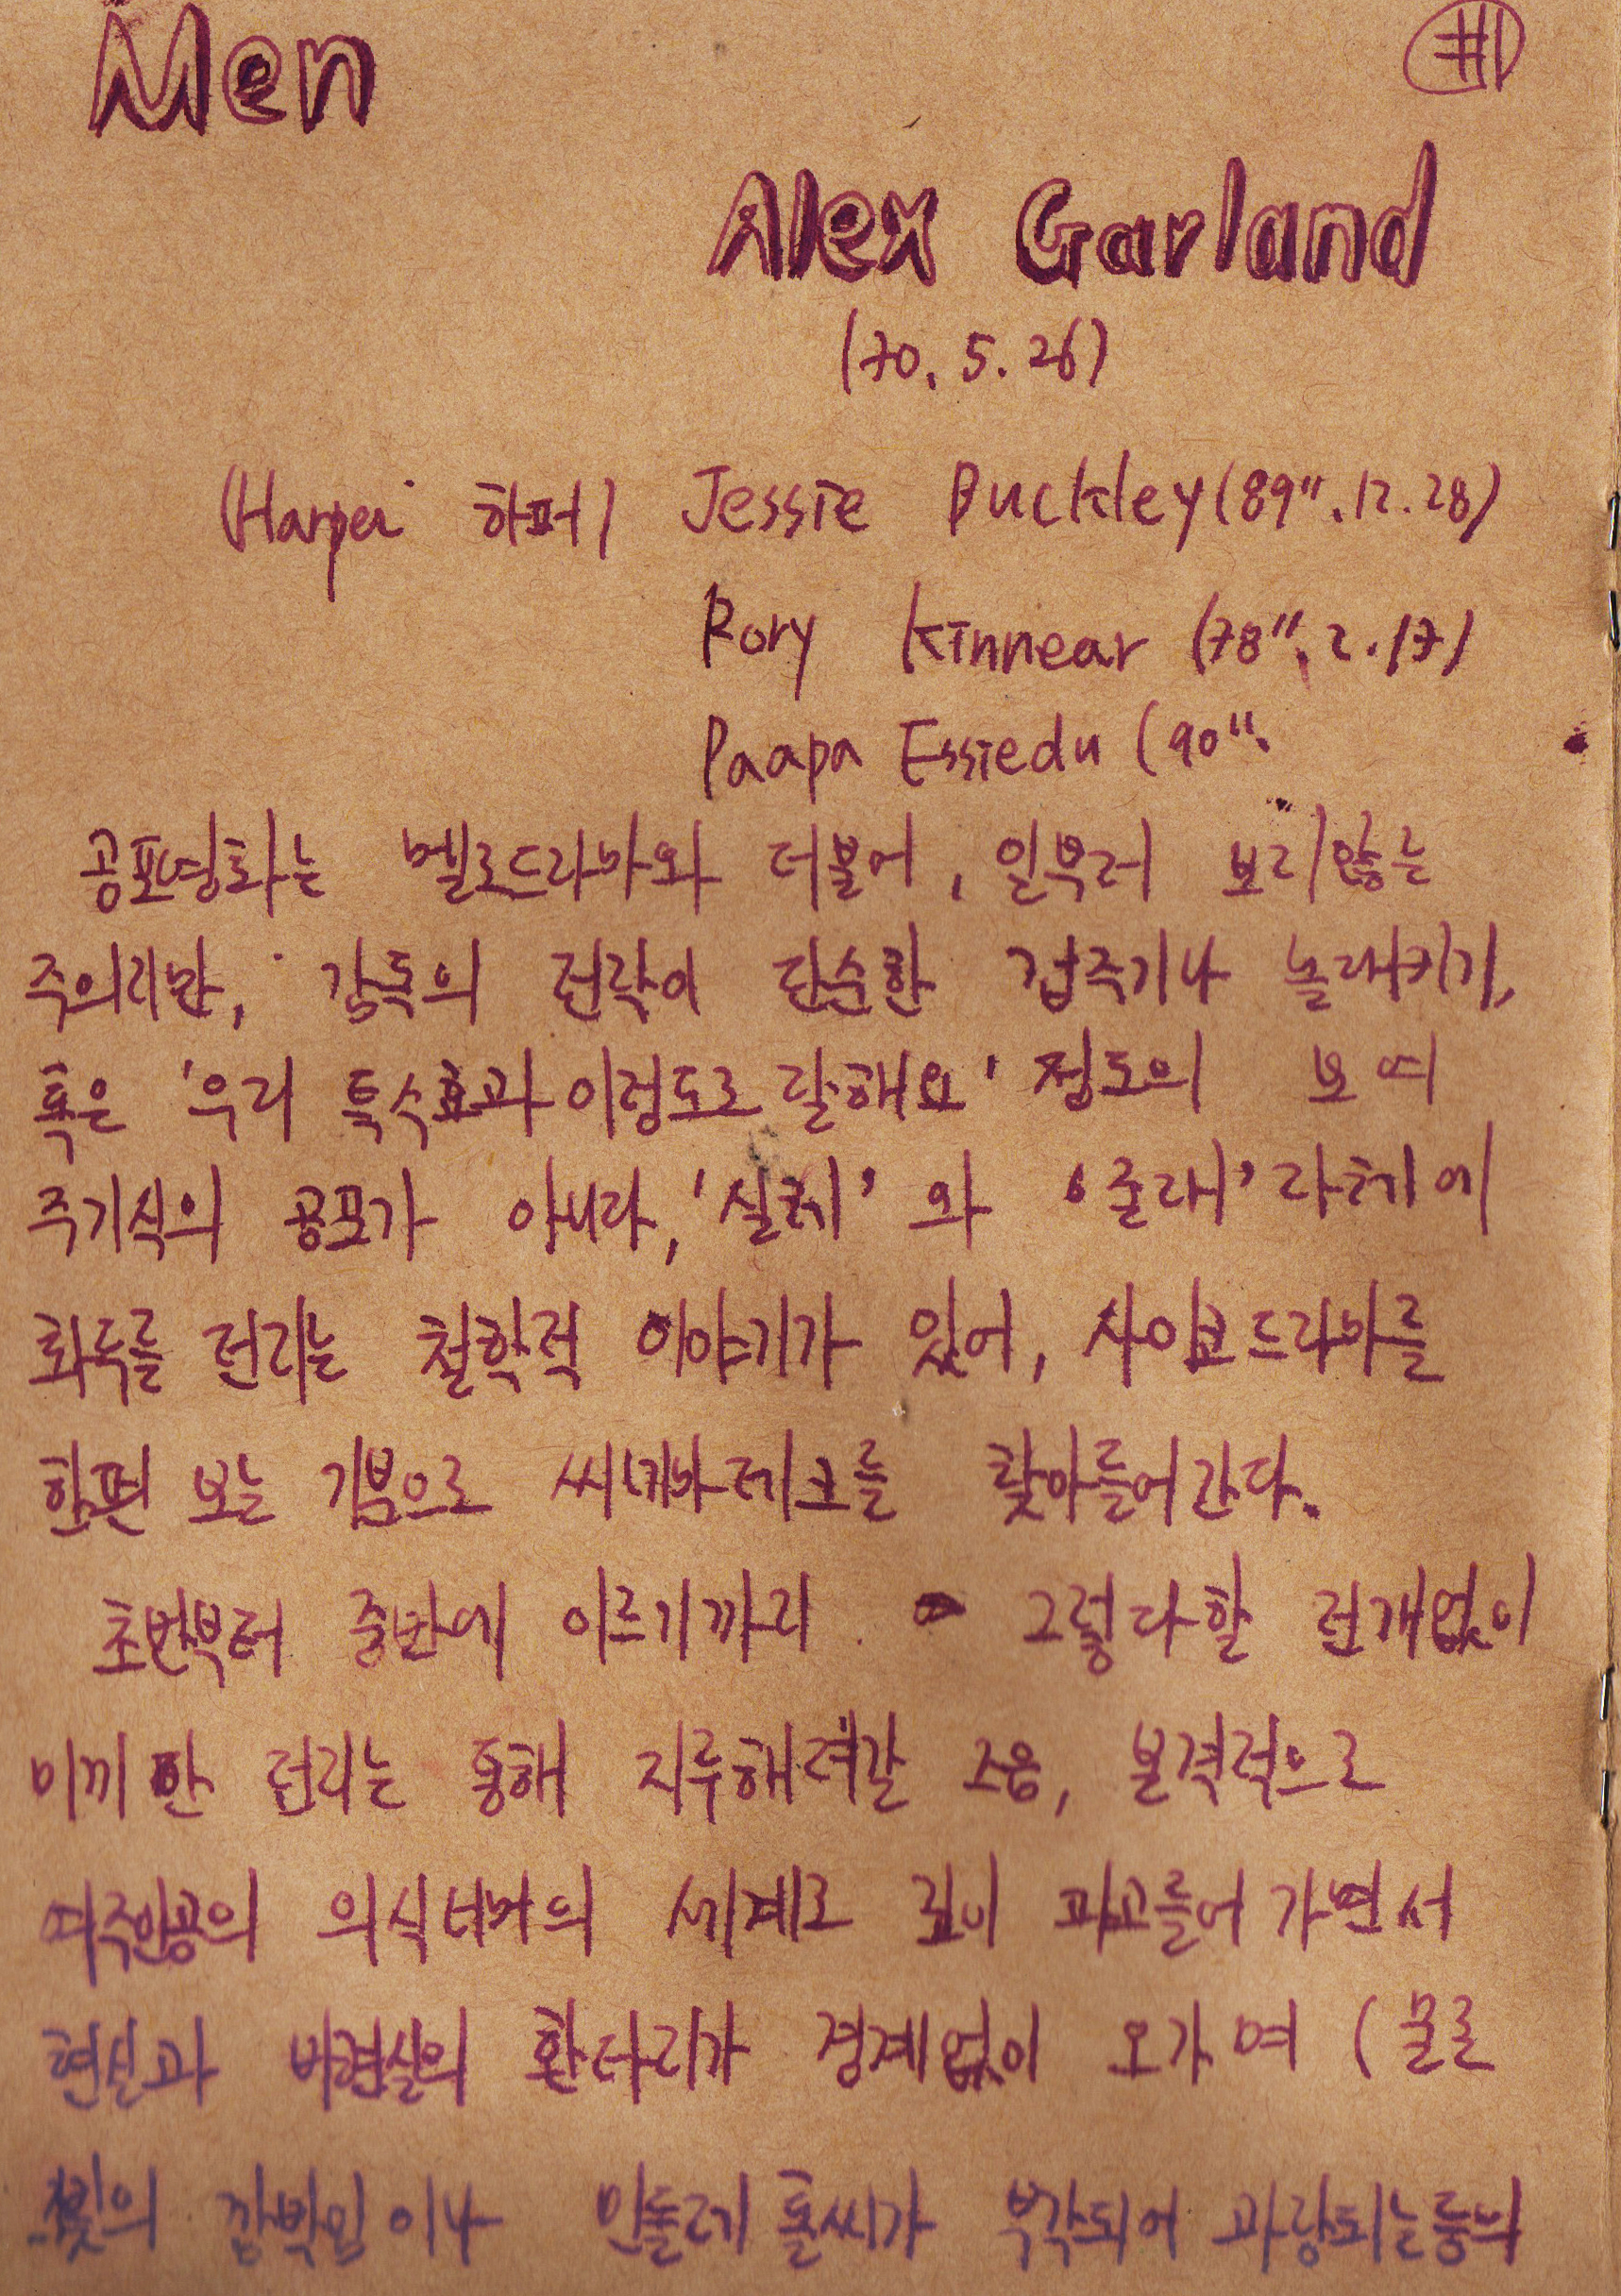 Men
#1
Alex Garland
(70. 5. 26)
(Harper 하퍼) Jessie Buckley (89". 12. 28)
Rory Kinnear (78". 2. 17)
Paapa Essiedu (90".
공포영화는 멜로드라마와 더불어, 일부러 보지않는
주의지만, 감독의 전략이 단순한 겁주기나 놀래키기,
혹은 '우리 특수효과 이정도로 잘해요' 정도의 보여
주기식의 공포가 아니라, '실체' 와 '존재' 자체에
화두를 던지는 철학적 이야기가 있어, 사이코드라마를
한편 보는 기분으로 씨네마테크를 찾아들어간다.
초반부터 중반에 이르기까지 그렇다할 전개없이
미끼만 던지는 통해 지루해려갈 즈음, 본격적으로
여주인공의 의식너머의 세계로 깊이 파고들어가면서
현실과 비현실의 환타지가 경계없이 오가며 (물론
빛의 깜박임이나 민들레 홀씨가 부각되어 과장되는 등의